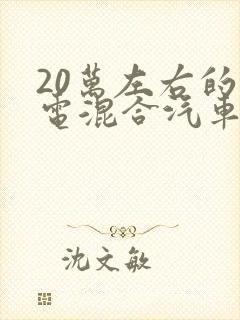 20萬左右的
電混合汽車
沈文敏